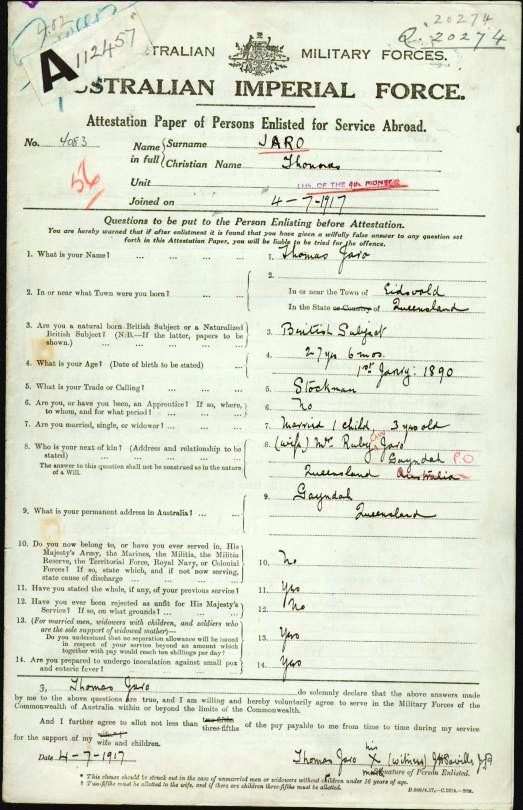 A 112457
20274
Q. 20274
AUSTRALIAN MILITARY FORCES.
AUSTRALIAN IMPERIAL FORCE.
Attestation Paper of Persons Enlisted for Service Abroad.
No. 4083 Name in full Surname JARO
Christian Name Thomas
56
Unit 11th OF THE 9th PIONEER
Joined on 4-7-1917
Questions to be put to the Person Enlisting before Attestation.
You are hereby warned that if after enlistment it is found that you have given a wilfully false answer to any question set
forth in this Attestation Paper, you will be liable to be tried for the offence.
1. What is your Name? ... ... ... 1. Thomas Jaro
2. In or near what Town were you born? ... ... 2. In or near the Town of Eidsvold
In the State or Country of Queensland
3. Are you a natural born British Subject or a Naturalized
British Subject? (N.B.—If the latter, papers to be
shown.) ... ... ... 3. British Subject
4. What is your Age? (Date of birth to be stated) ... 4. 27 yrs 6 mos.
1st Janry: 1890
5. What is your Trade or Calling? ... ... 5. Stockman
6. Are you, or have you been, an Apprentice? If so, where,
to whom, and for what period? ... ... 6. No
7. Are you married, single, or widower? ... ... 7. Married 1 child, 3 yrs old
8. Who is your next of kin? (Address and relationship to be
stated) ... ... ... 8. (wife) Mrs. Ruby Jaro
The answer to this question shall not be construed as in the nature
of a Will. Gayndah P.O
Queensland Australia
9. What is your permanent address in Australia? ... 9. Gayndah
Queensland
10. Do you now belong to, or have you ever served in, His
Majesty's Army, the Marines, the Militia, the Militia
Reserve, the Territorial Force, Royal Navy, or Colonial
Forces? If so, state which, and if not now serving,
state cause of discharge ... ... ... 10. No
11. Have you stated the whole, if any, of your previous service? 11. Yes
12. Have you ever been rejected as unfit for His Majesty's
Service? If so, on what grounds? ... ... 12. No
13. (For married men, widowers with children, and soldiers who
are the sole support of widowed mother)—
Do you understand that no separation allowance will be issued
in respect of your service beyond an amount which
together with pay would reach ten shillings per day? 13. Yes
14. Are you prepared to undergo inoculation against small pox
and enteric fever? ... ... ... 14. Yes
I, Thomas Jaro do solemnly declare that the above answers made
by me to the above questions are true, and I am willing and hereby voluntarily agree to serve in the Military Forces of the
Commonwealth of Australia within or beyond the limits of the Commonwealth.
And I further agree to allot not less than two-fifths three-fifths of the pay payable to me from time to time during my service
for the support of my wife wife and children.
Date 4-7-1917 Thomas Jaro his X mark (witness)
Signature of Person Enlisted.
* This clause should be struck out in the case of unmarried men or widowers without children under 16 years of age.
† Two-fifths must be allotted to the wife, and if there are children three-fifths must be allotted.